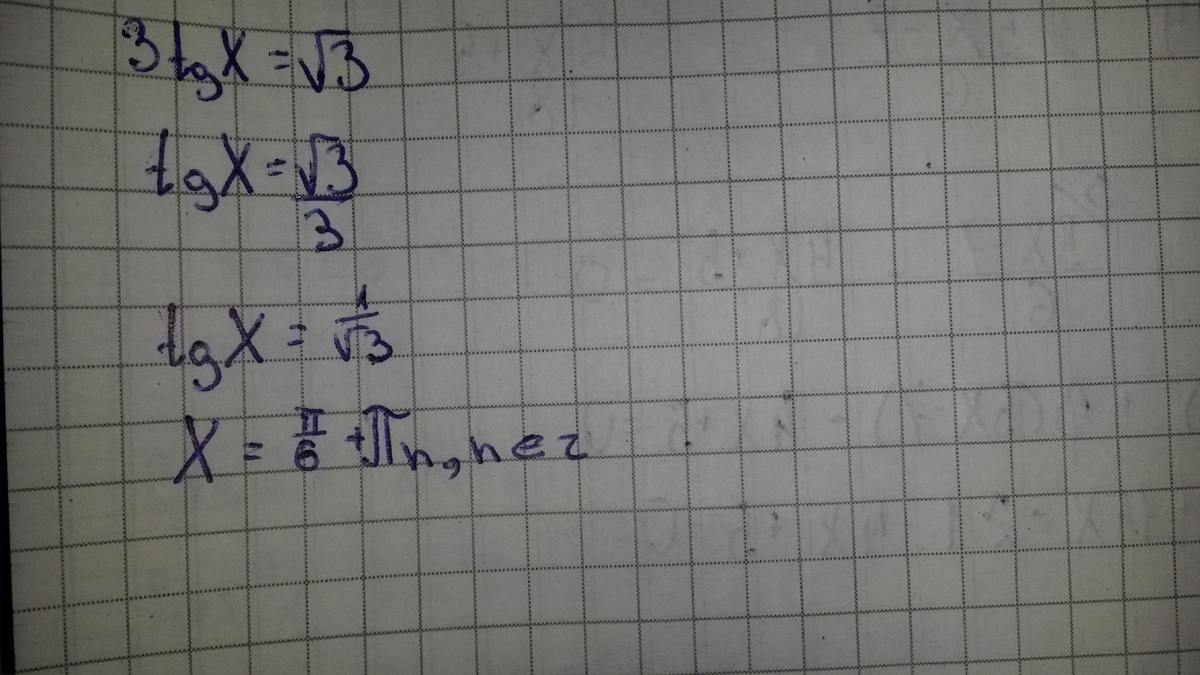 3tgX = √3
tgX = √3/3
tgX = 1/√3
X = π/6 + πn, n ∈ z